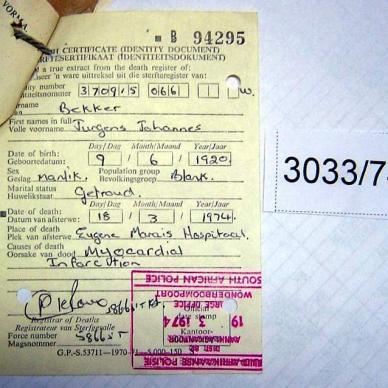 VORM A
B 94295
CERTIFICATE (IDENTITY DOCUMENT)
SERTIFIKAAT (IDENTITEITSDOKUMENT)
a true extract from the death register of:
'n ware uittreksel uit die sterfteregister van:
number
370915 066 1 W.
Bekker
First names in full
Volle voorname Jurgens Johannes
Day/Dag Month/Maand Year/Jaar
Date of birth:
Geboortedatum: 9 6 1920
Sex Population group
Geslag manlik. Bevolkingsgroep Blank.
Marital status
Huwelikstaat Getroud.
Day/Dag Month/Maand Year/Jaar
Date of death:
Datum van afsterwe: 18 3 1974
Place of death
Plek van afsterwe Eugene Marais Hospitaal.
Causes of death
Oorsake van dood Myocardial
Infarction
Registrar of Deaths
Registrateur van Sterfgevalle
Force number
Magsnommer
Official
date stamp
Kantoor-
G.P.-S.53711—1970
SOUTH AFRICAN POLICE
WONDERBOOMPOORT
CHARGE OFFICE
19 3 1974
AANKLAGKANTOOR
SUID-AFRIKAANSE POLISIE
3033/7